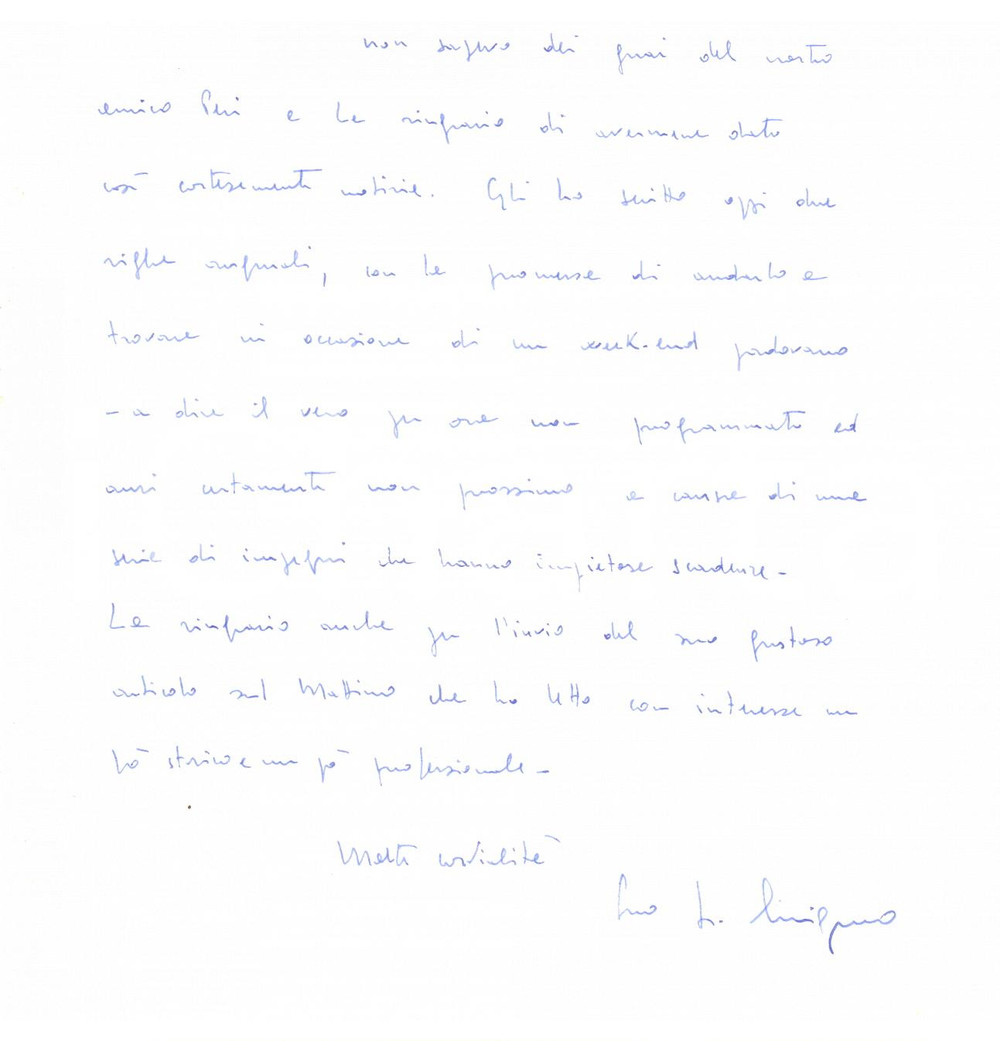 non sapevo dei guai del nostro
amico Peri e La ringrazio di avermene dato
così cortesemente notizie. Gli ho scritto oggi due
righe augurali, con la promessa di andarlo a
trovare in occasione di un week-end padovano
- a dire il vero per ora non programmato ed
anzi certamente non prossimo a causa di una
serie di impegni che hanno impietose scadenze -
La ringrazio anche per l'invio del suo gustoso
articolo sul Mattino che ho letto con interesse un
pò storico e un pò professionale -
Molta cordialità
Suo